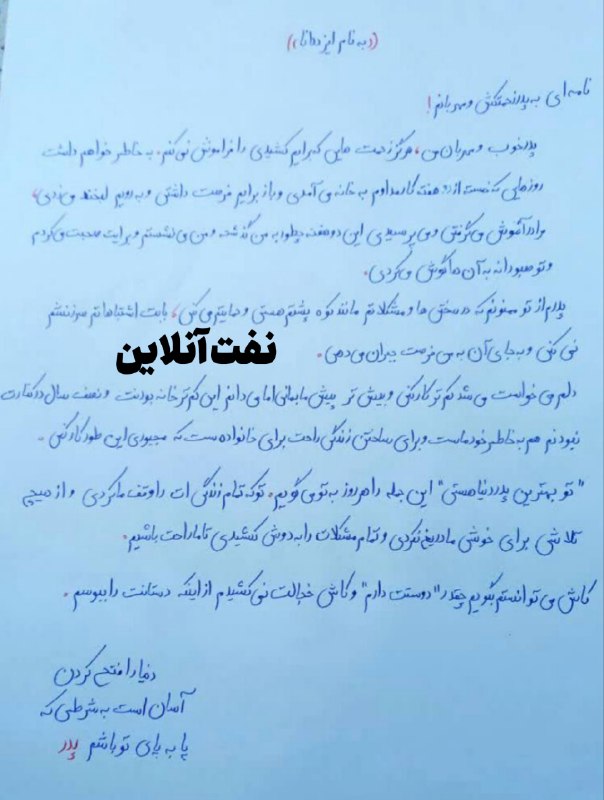 ((به نام ایزد دانا))
نامه‌ای به پدر زحمتکش و مهربانم!
پدر خوب و مهربان من، هرگز زحمت هایی که برایم کشیدی را فراموش نمی کنم. به خاطر خواهم داشت
روزهایی که خسته از دو هفته کار مداوم به خانه می آمدی و باز برایم فرصت داشتی و به رویم لبخند می زدی،
مرا در آغوش می گرفتی و می پرسیدی این دو هفته چطور به من گذشته و من می نشستم و برایت صحبت می کردم
و تو صبورانه به آن ها گوش می کردی.
پدرم از تو ممنونم که در سختی ها و مشکلاتم مانند کوه پشتم هستی و حمایتم می کنی، بابت اشتباهاتم سرزنشم
نمی کنی و به جای آن به من فرصت جبران می دهی.
نفت آنلاین
دلم می خواست می شد کم تر کار کنی و بیش تر پیش ما بمانی اما می دانم این کم تر خانه بودنت و نصف سال در کنارت
نبودنم هم به خاطر خود ماست و برای ساختن زندگی راحت برای خانواده ست که مجبوری این طور کار کنی.
"تو بهترین پدر دنیا هستی" این جمله را هر روز به تو می گویم. تو که تمام زندگی ات را وقف ما کردی و از هیچ
تلاشی برای خوشی ما دریغ نکردی و تمام مشکلات را به دوش کشیدی تا ما راحت باشیم.
کاش می توانستم بگویم چقدر "دوستت دارم" و کاش خجالت نمی کشیدم از اینکه دستانت را ببوسم.
دنیا را فتح کردن
آسان است به شرطی که
پا به پای تو باشم پدر